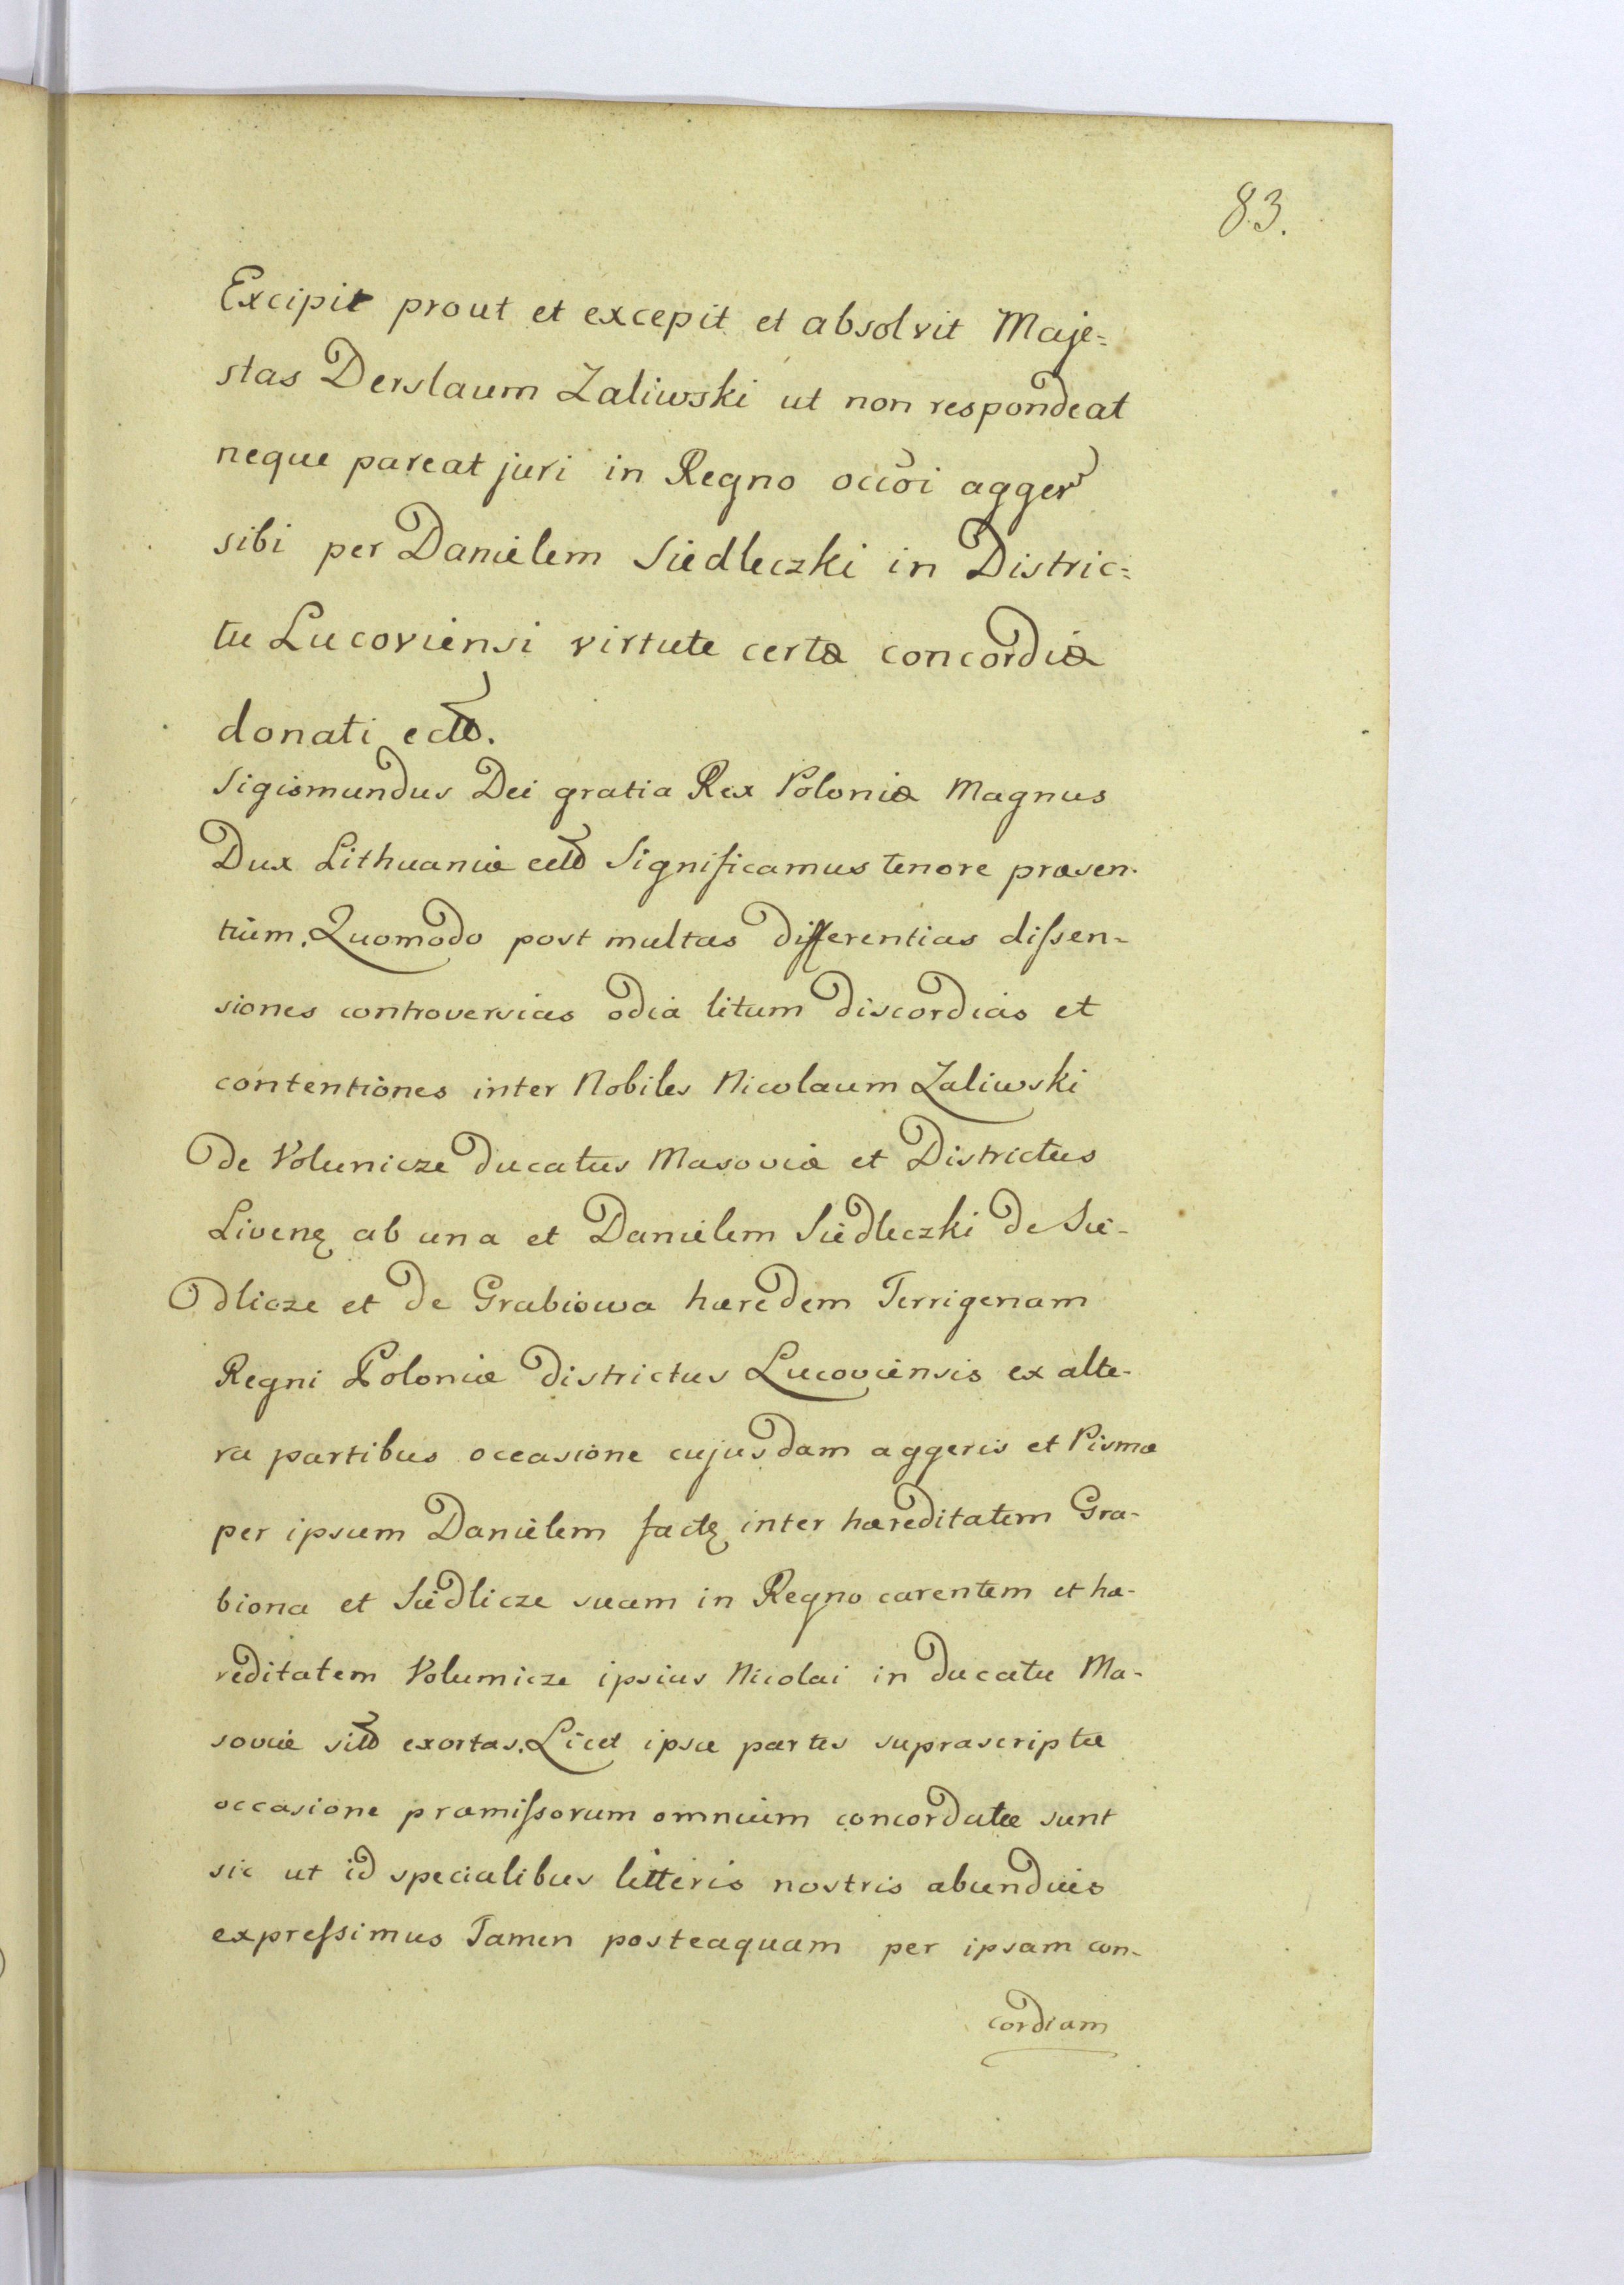 83.
Excipit prout et excepit et absolvit Maje=
stas Derslaum Zaliwski ut non respondeat
neque pareat juri in Regno occoi agger
sibi per Danielem Siedleczki in Distric=
tu Lucoviensi virtute certæ concordiæ
donati
Sigismundus Dei gratia Rex Poloniæ Magnus
Dux Lithuaniæ Significamus tenore præsen-
tium. Quomodo post multas differentias dissen-
siones controversias odia litum discordias et
contentiones inter Nobiles Nicolaum Zaliwski
de Volunicze ducatus Masoviæ et Districtus
Livenę ab una et Danielem Siedleczki de Sie-
dlicze et de Grabiowa hæredem Terrigenam
Regni Poloniæ districtus Lucoviensis ex alte-
ra partibus occasione cujusdam aggeris et Pismæ
per ipsum Danielem factę inter hæreditatem Gra-
biona et Siedlicze suam in Regno carentem et hæ-
reditatem Volumicze ipsius Nicolai in ducatu Ma-
soviæ exortas. Licet ipsæ partes suprascriptæ
occasione præmissorum omnium concordatæ sunt
sic ut id specialibus litteris nostris abundius
expressimus Tamen posteaquam per ipsam con-
cordiam